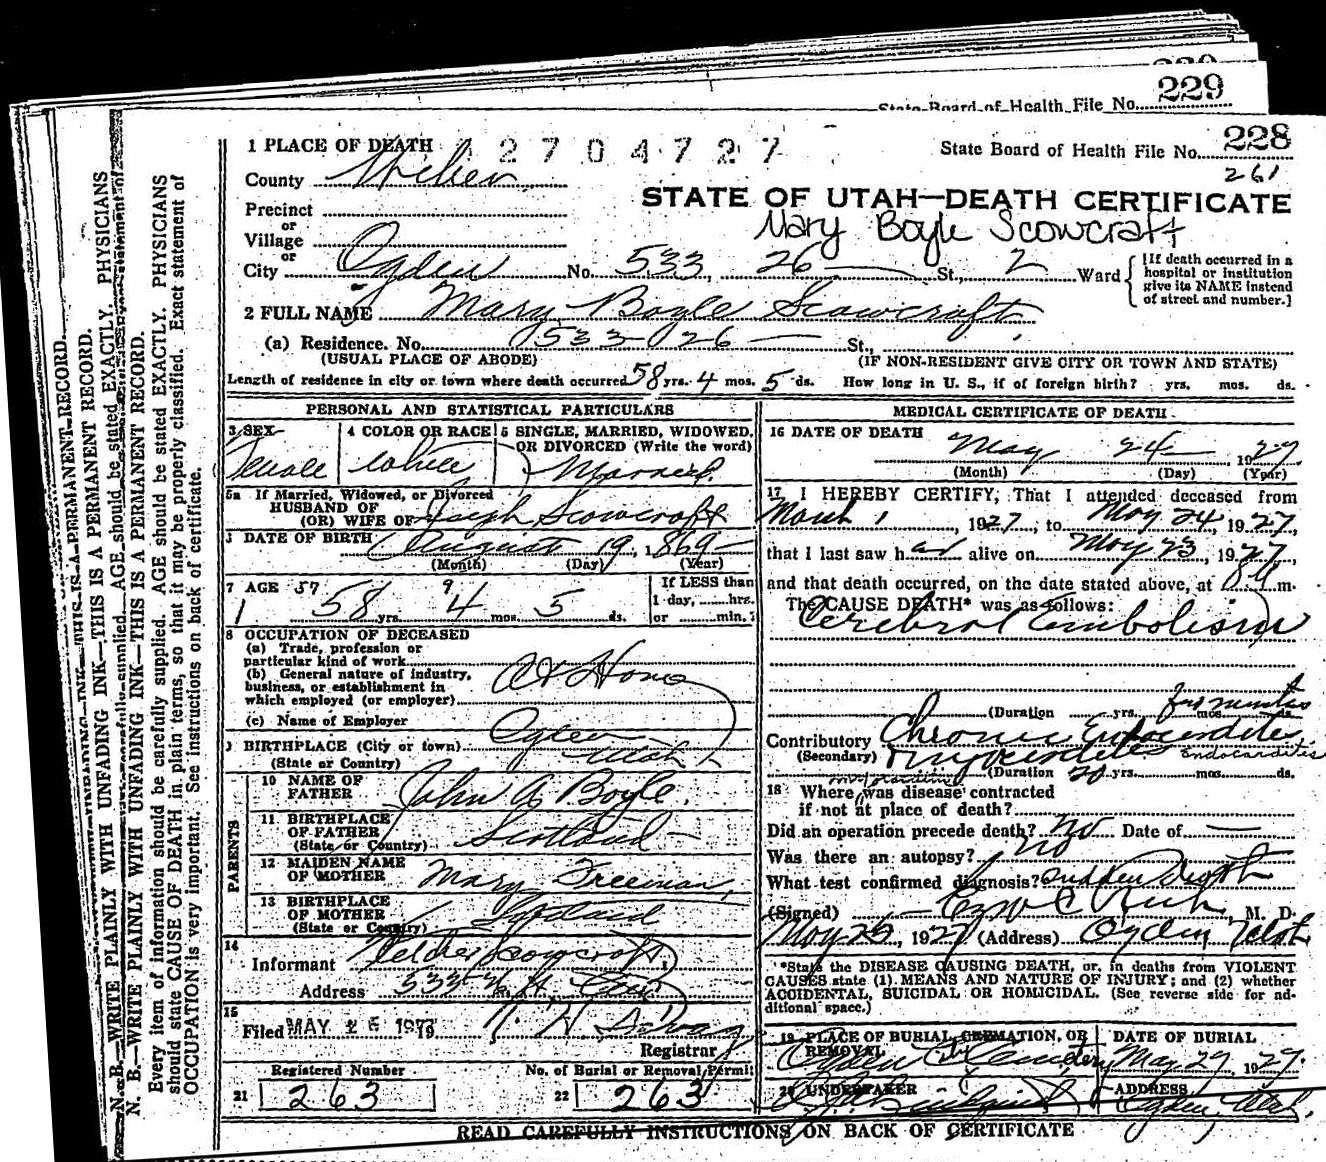 229
State Board of Health File No.
228
State Board of Health File No.
261
1 PLACE OF DEATH 2704727
County Weber
STATE OF UTAH—DEATH CERTIFICATE
Mary Boyle Scowcraft
Precinct
or
Village
or
City Ogden No. 533, 26 St., 2 Ward
[If death occurred in a hospital or institution give its NAME instead of street and number.]
2 FULL NAME Mary Boyle Scowcraft
(a) Residence. No. 533 26 St.,
(USUAL PLACE OF ABODE) (IF NON-RESIDENT GIVE CITY OR TOWN AND STATE)
Length of residence in city or town where death occurred 58 yrs. 4 mos. 5 ds. How long in U. S., if of foreign birth? yrs. mos. ds.
PERSONAL AND STATISTICAL PARTICULARS
3 SEX Female
4 COLOR OR RACE White
5 SINGLE, MARRIED, WIDOWED, OR DIVORCED (Write the word) Married
5a If Married, Widowed, or Divorced
HUSBAND OF
(OR) WIFE OF Joseph Scowcroft
DATE OF BIRTH August 19, 1869
(Month) (Day) (Year)
7 AGE 57 9
58 yrs. 4 mos. 5 ds.
If LESS than
1 day, hrs.
or min.
8 OCCUPATION OF DECEASED
(a) Trade, profession or
particular kind of work
(b) General nature of industry,
business, or establishment in
which employed (or employer)
At Home
(c) Name of Employer
BIRTHPLACE (City or town) Ogden
(State or Country) Utah
PARENTS
10 NAME OF FATHER John A Boyle
11 BIRTHPLACE OF FATHER
(State or Country) Scotland
12 MAIDEN NAME OF MOTHER Mary Freeman
13 BIRTHPLACE OF MOTHER
(State or Country)
14
Informant Scowcroft
Address 533
15
Filed MAY 26
Registrar
Registered Number
21 263
No. of Burial or Removal Permit
22 263
MEDICAL CERTIFICATE OF DEATH
16 DATE OF DEATH
May 24, 1927
(Month) (Day) (Year)
17 I HEREBY CERTIFY, That I attended deceased from
March 1, 1927, to May 24, 1927,
that I last saw her alive on May 23, 1927,
and that death occurred, on the date stated above, at 8 m.
The CAUSE DEATH* was as follows:
Cerebral Embolism
(Duration yrs. mos. ds.
Contributory Chronic Endocarditis
(Secondary) Myocarditis Endocarditis
myocarditis (Duration 20 yrs. mos. ds.
18 Where was disease contracted
if not at place of death?
Did an operation precede death? No Date of
Was there an autopsy? No
What test confirmed diagnosis? Sudden Death
(Signed) M. D.
May 25, 1927 (Address) Ogden Utah
*State the DISEASE CAUSING DEATH, or, in deaths from VIOLENT
CAUSES state (1) MEANS AND NATURE OF INJURY; and (2) whether
ACCIDENTAL, SUICIDAL OR HOMICIDAL. (See reverse side for additional space.)
19 PLACE OF BURIAL, CREMATION, OR REMOVAL Ogden City Cemetery
DATE OF BURIAL May 29, 1927
20 UNDERTAKER
ADDRESS Ogden, Utah.
READ CAREFULLY INSTRUCTIONS ON BACK OF CERTIFICATE
N. B.—WRITE PLAINLY WITH UNFADING INK—THIS IS A PERMANENT RECORD.
Every item of information should be carefully supplied. AGE should be stated EXACTLY. PHYSICIANS
should state CAUSE OF DEATH in plain terms, so that it may be properly classified. Exact statement of
OCCUPATION is very important. See instructions on back of certificate.